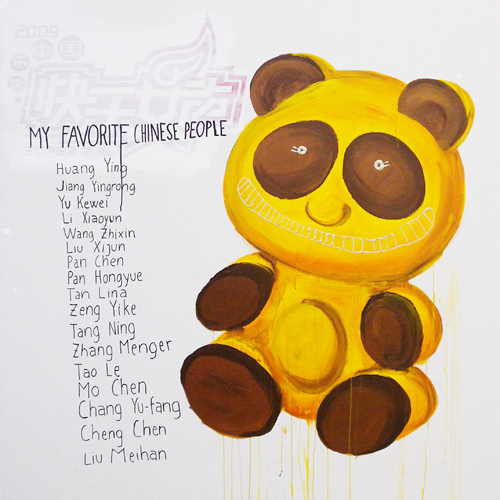 2009
中国
快乐女声
MY FAVORITE CHINESE PEOPLE
Huang Ying
Jiang Yingrong
Yu Kewei
Li Xiaoyun
Wang Zhixin
Liu Xijun
Pan Chen
Pan Hongyue
Tan Lina
Zeng Yike
Tang Ning
Zhang Menger
Tao Le
Mo Chen
Chang Yu-fang
Cheng Chen
Liu Meihan